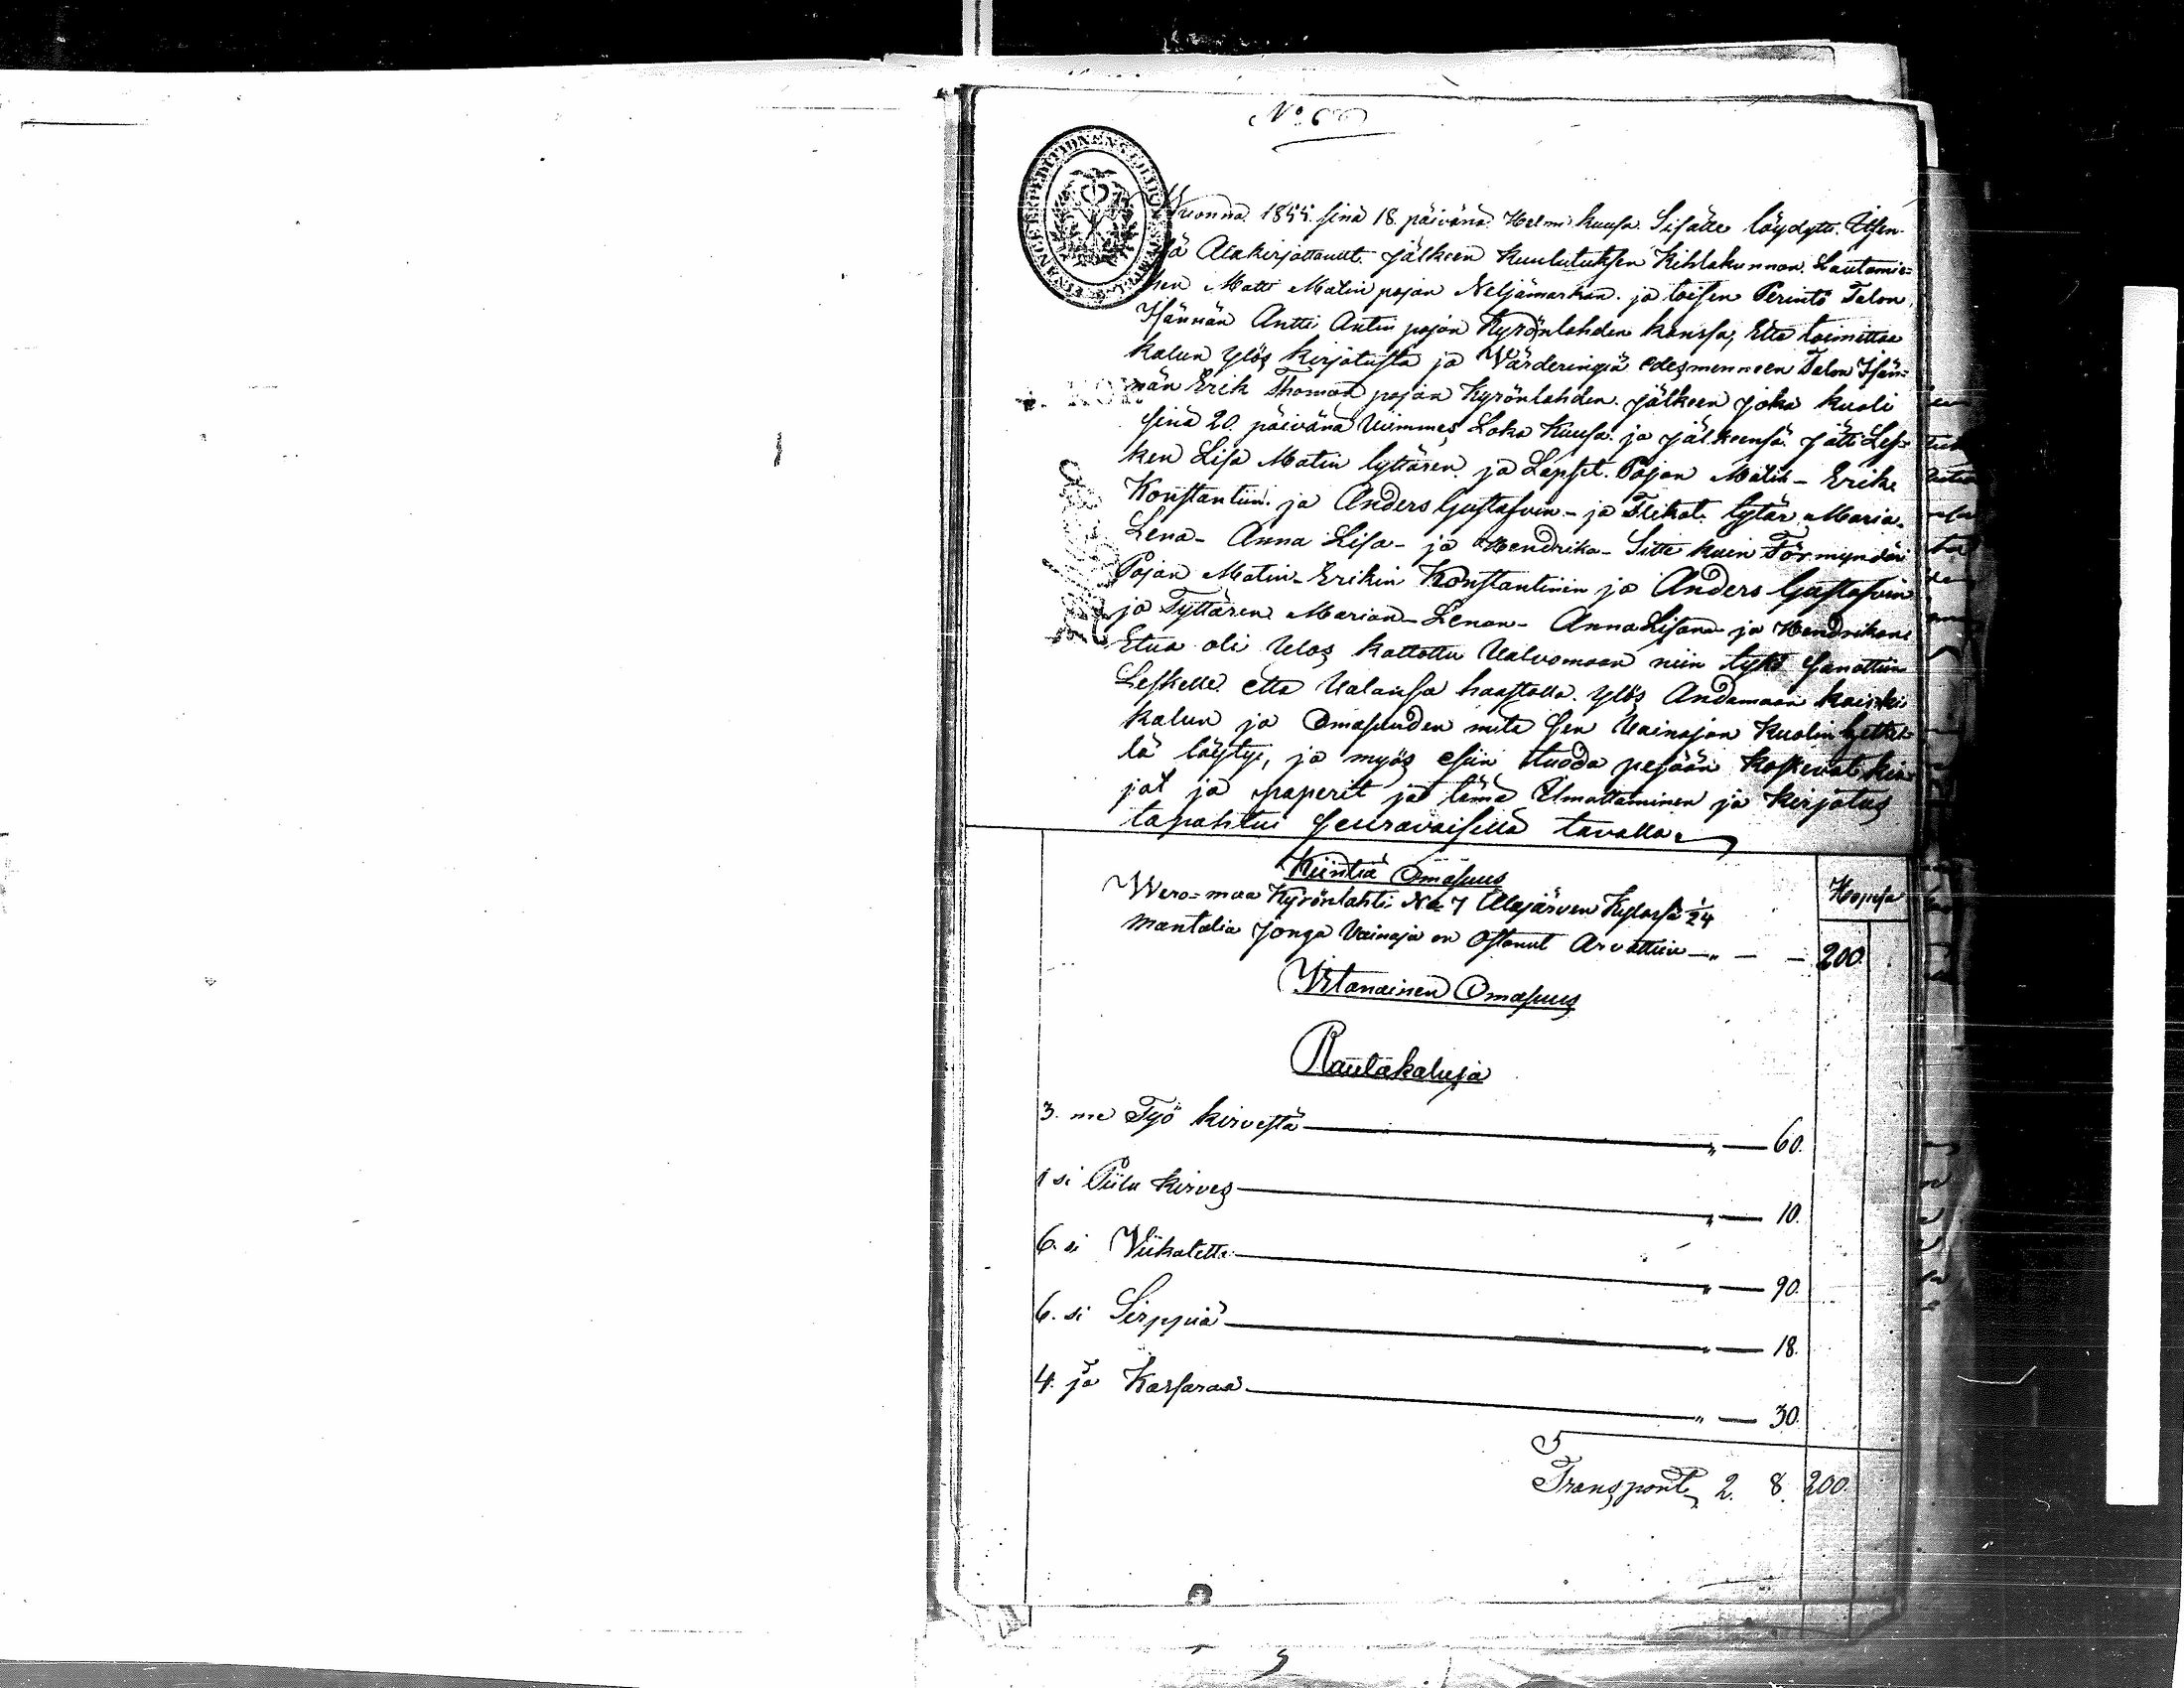 No 66
Vuonna 1855. sinä 18. päivänä Helmi kuusa. Sisälle löydytt. Itsen-
sä Alakirjottanut. jälkeen Kuulutuksen Kihlakunnan Lautamie=
hen Matti Matin pojan Neljämarkan. ja toisen Perintö Talon
Isännän Antti Antin pojan Kyrönlahden kanssa, Että toimittaa
kalun ylös kirjotusta ja Värderingiä edesmenneen Talon Isän=
nän Erik Thomas pojan Kyrönlahden. jälkeen joka kuoli
sinä 20. päivänä Viimmes Loka Kuusa. ja jälkeensä jätti Les=
ken Lisa Matin tyttären ja Lapset. Pojan Matin - Erike
Konstantiin. ja Anders Gustafvin - ja Tlikat. tytär Maria.
Lena - Anna Lisa - ja Hendrika - Sitte kuin Förmyndäri
Pojan Matin - Erikin Konstantinin ja Anders Gustafvin
ja Tyttären Marian - Lenan - Anna Lisana ja Hendrikans
Etua oli Ulos kattottu Valvomaan niin tykö sanottiin
Leskelle että Valansa haastolla. ylös Andamaan kaikki
kalun ja Omasuuden mitä sen Vainajan Kuolin hetkel=
lä löytyi, ja myös esiin tuoda pesään koskevat kir
jat ja paperit ja tämä Ilmottaminen ja kirjotus
tapahtui seuravaisella tavalla.
Kiintiä Omasuus
Hopiesa
Wero=maa Kyrönlahti No 7 Alajärven Kylässä 1/24
Mantalia jonga Vainaja on Ostanut Arvattiin — „ — — 200.
Irtanainen Omasuus
Rautakaluja
3. me Työ kirvestä — „ — 60.
1 si Piilu kirves — „ — 10.
6. si Viikatetta — „ — 90.
6. si Sirppiä — „ — 18.
4. jä Kassaraa — „ — 30.
Transport 2. 8. 200.